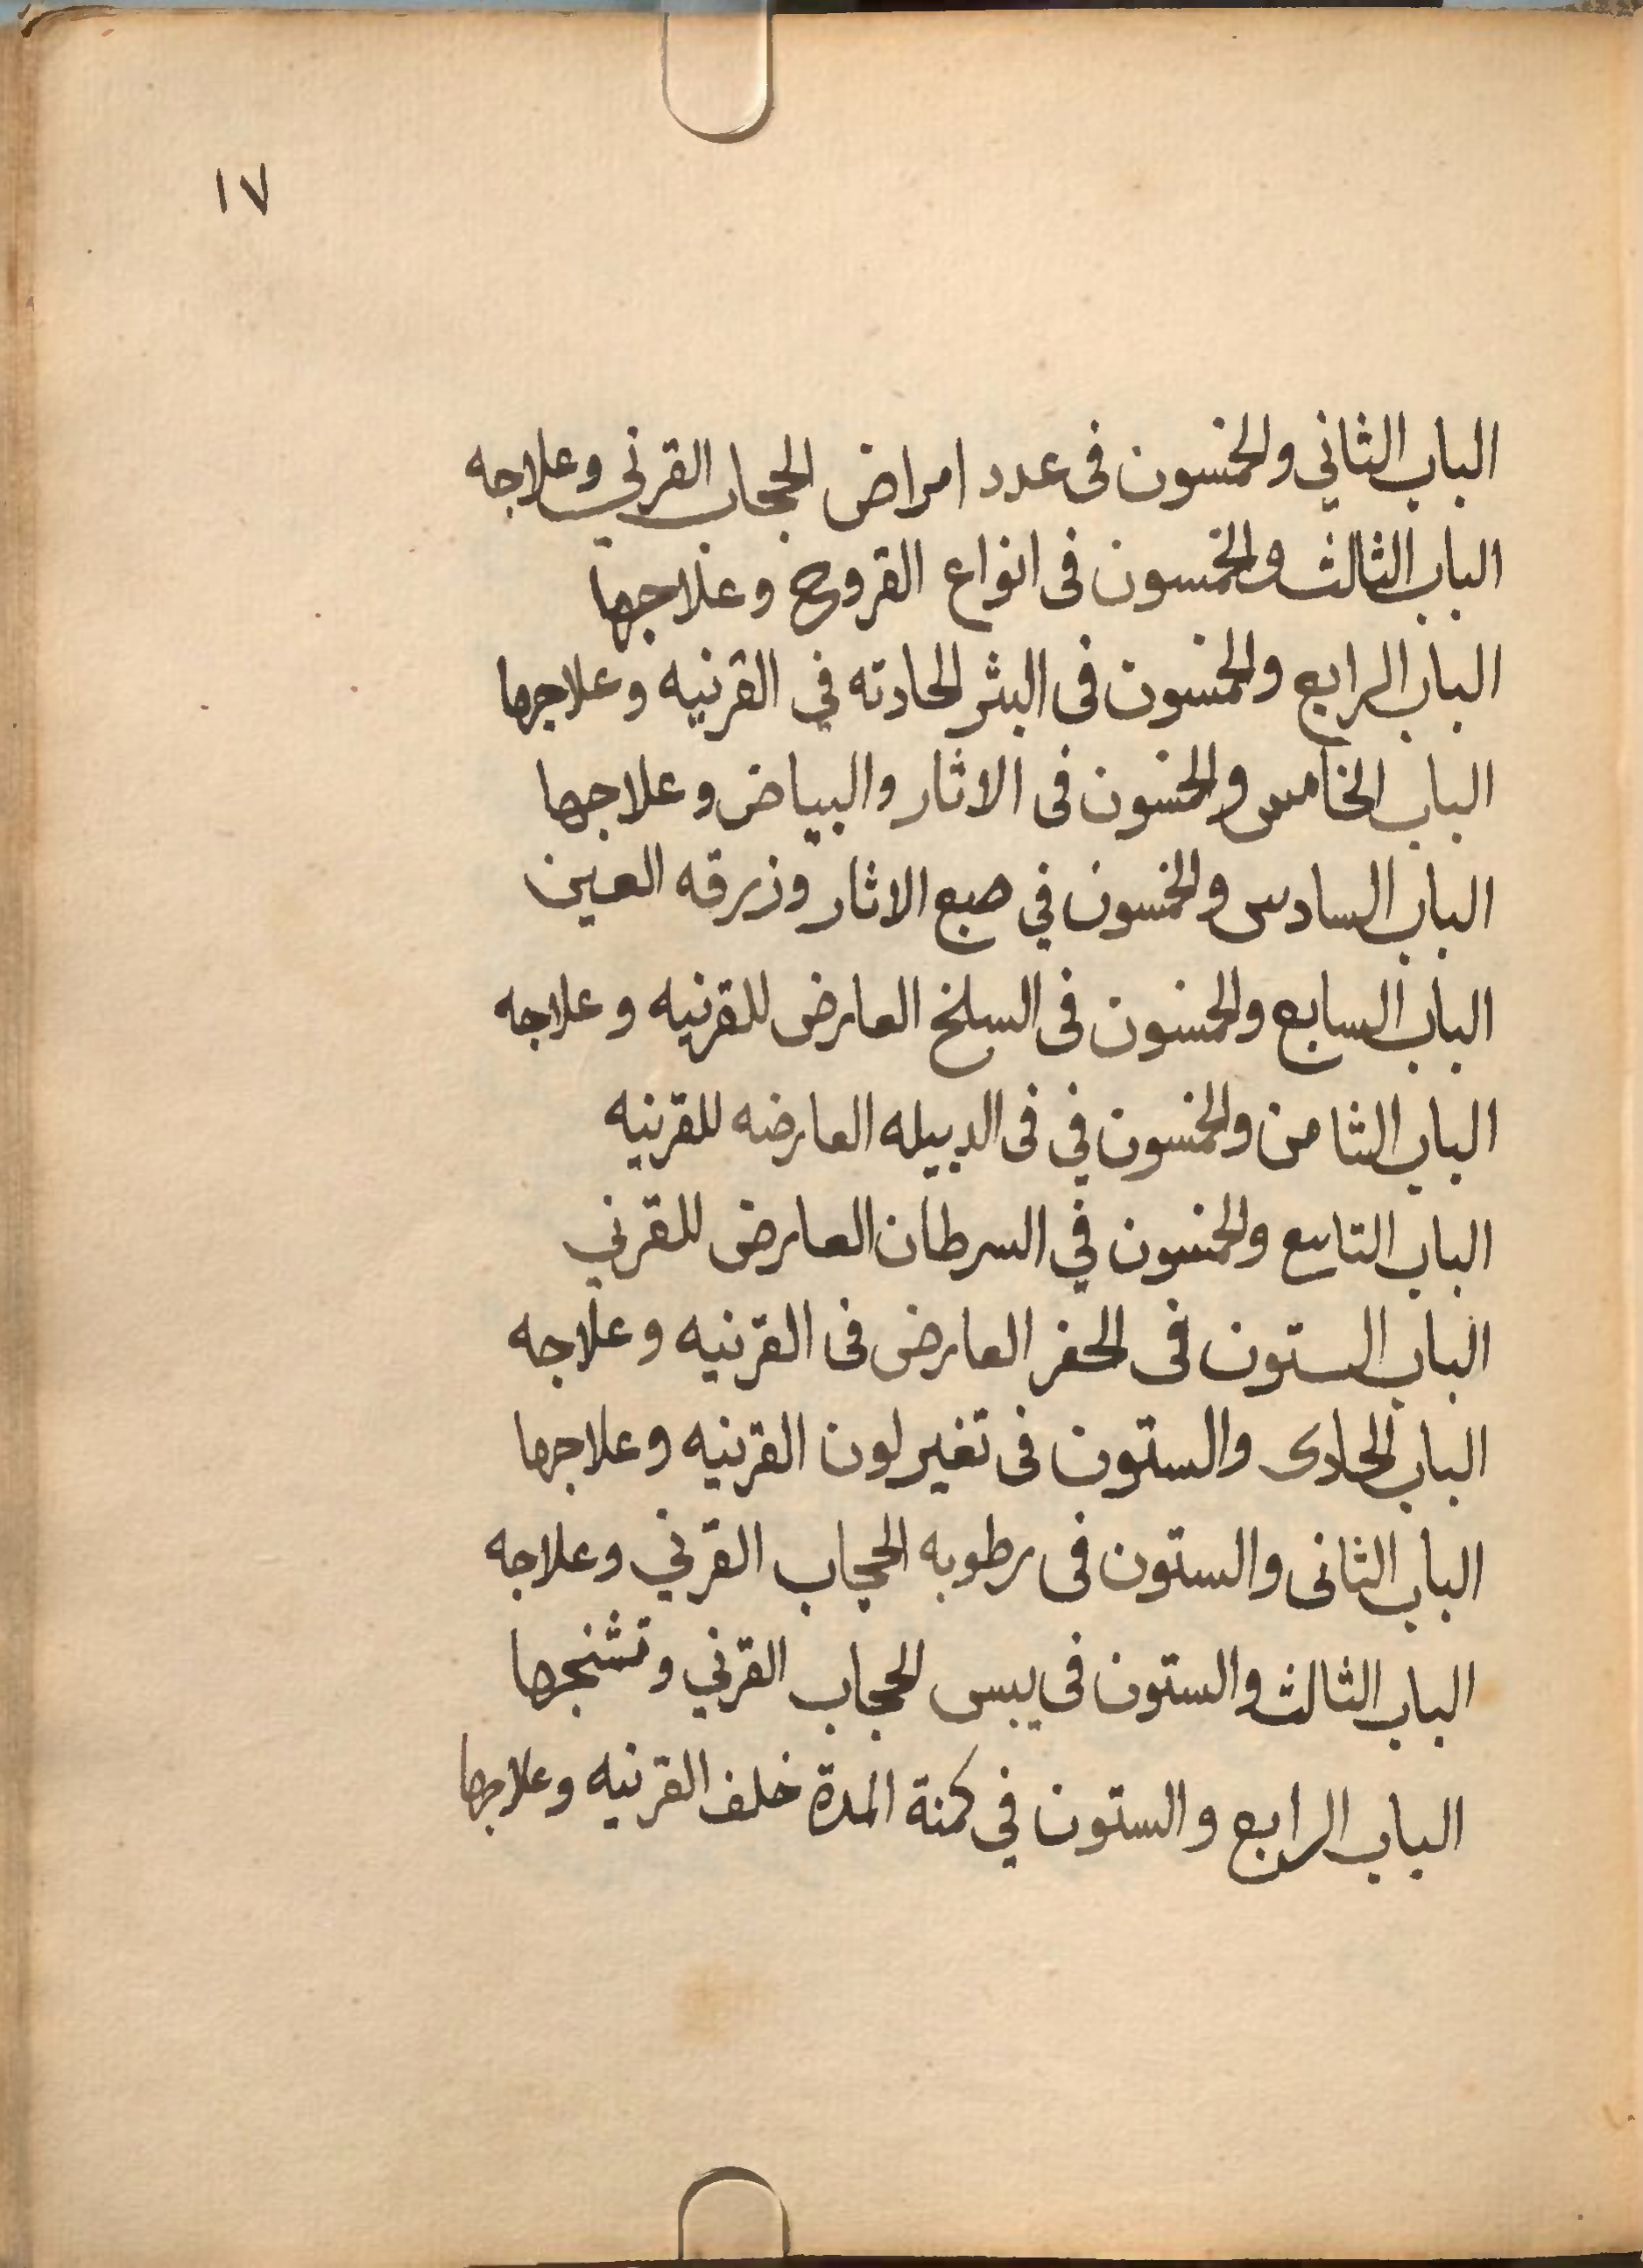 ١٧
الباب الثاني والخمسون فى عدد امراض الحجاب القرني وعلاجه
الباب الثالث والخمسون فى انواع القروح وعلاجها
الباب الرابع والخمسون فى البثر الحادثه في القرنيه وعلاجها
الباب الخامس والخمسون فى الاثار والبياض وعلاجها
الباب السادس والخمسون في صبع الاثار وزرقه العين
الباب السابع والخمسون فى السلخ العارض للقرنيه وعلاجه
الباب الثامن والخمسون في فى الدبيله العارضه للقرنيه
الباب التاسع والخمسون في السرطان العارض للقرني
الباب الستون فى الحفر العارض فى القرنيه وعلاجه
الباب الحادى والستون فى تغير لون القرنيه وعلاجها
الباب الثانى والستون فى رطوبه الحجاب القرني وعلاجه
الباب الثالث والستون فى يبس الحجاب القرني وتشنجها
الباب الرابع والستون في كمنة المدة خلف القرنيه وعلاجها